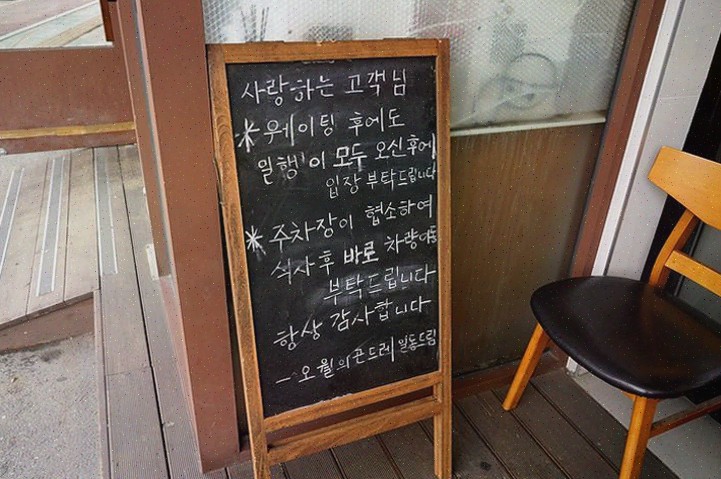 사랑하는 고객님
* 웨이팅 후에도
일행이 모두 오신후에
입장 부탁드립니다
* 주차장이 협소하여
식사후 바로 차량이동
부탁드립니다
항상 감사합니다
- 오월의곤드레 일동드림